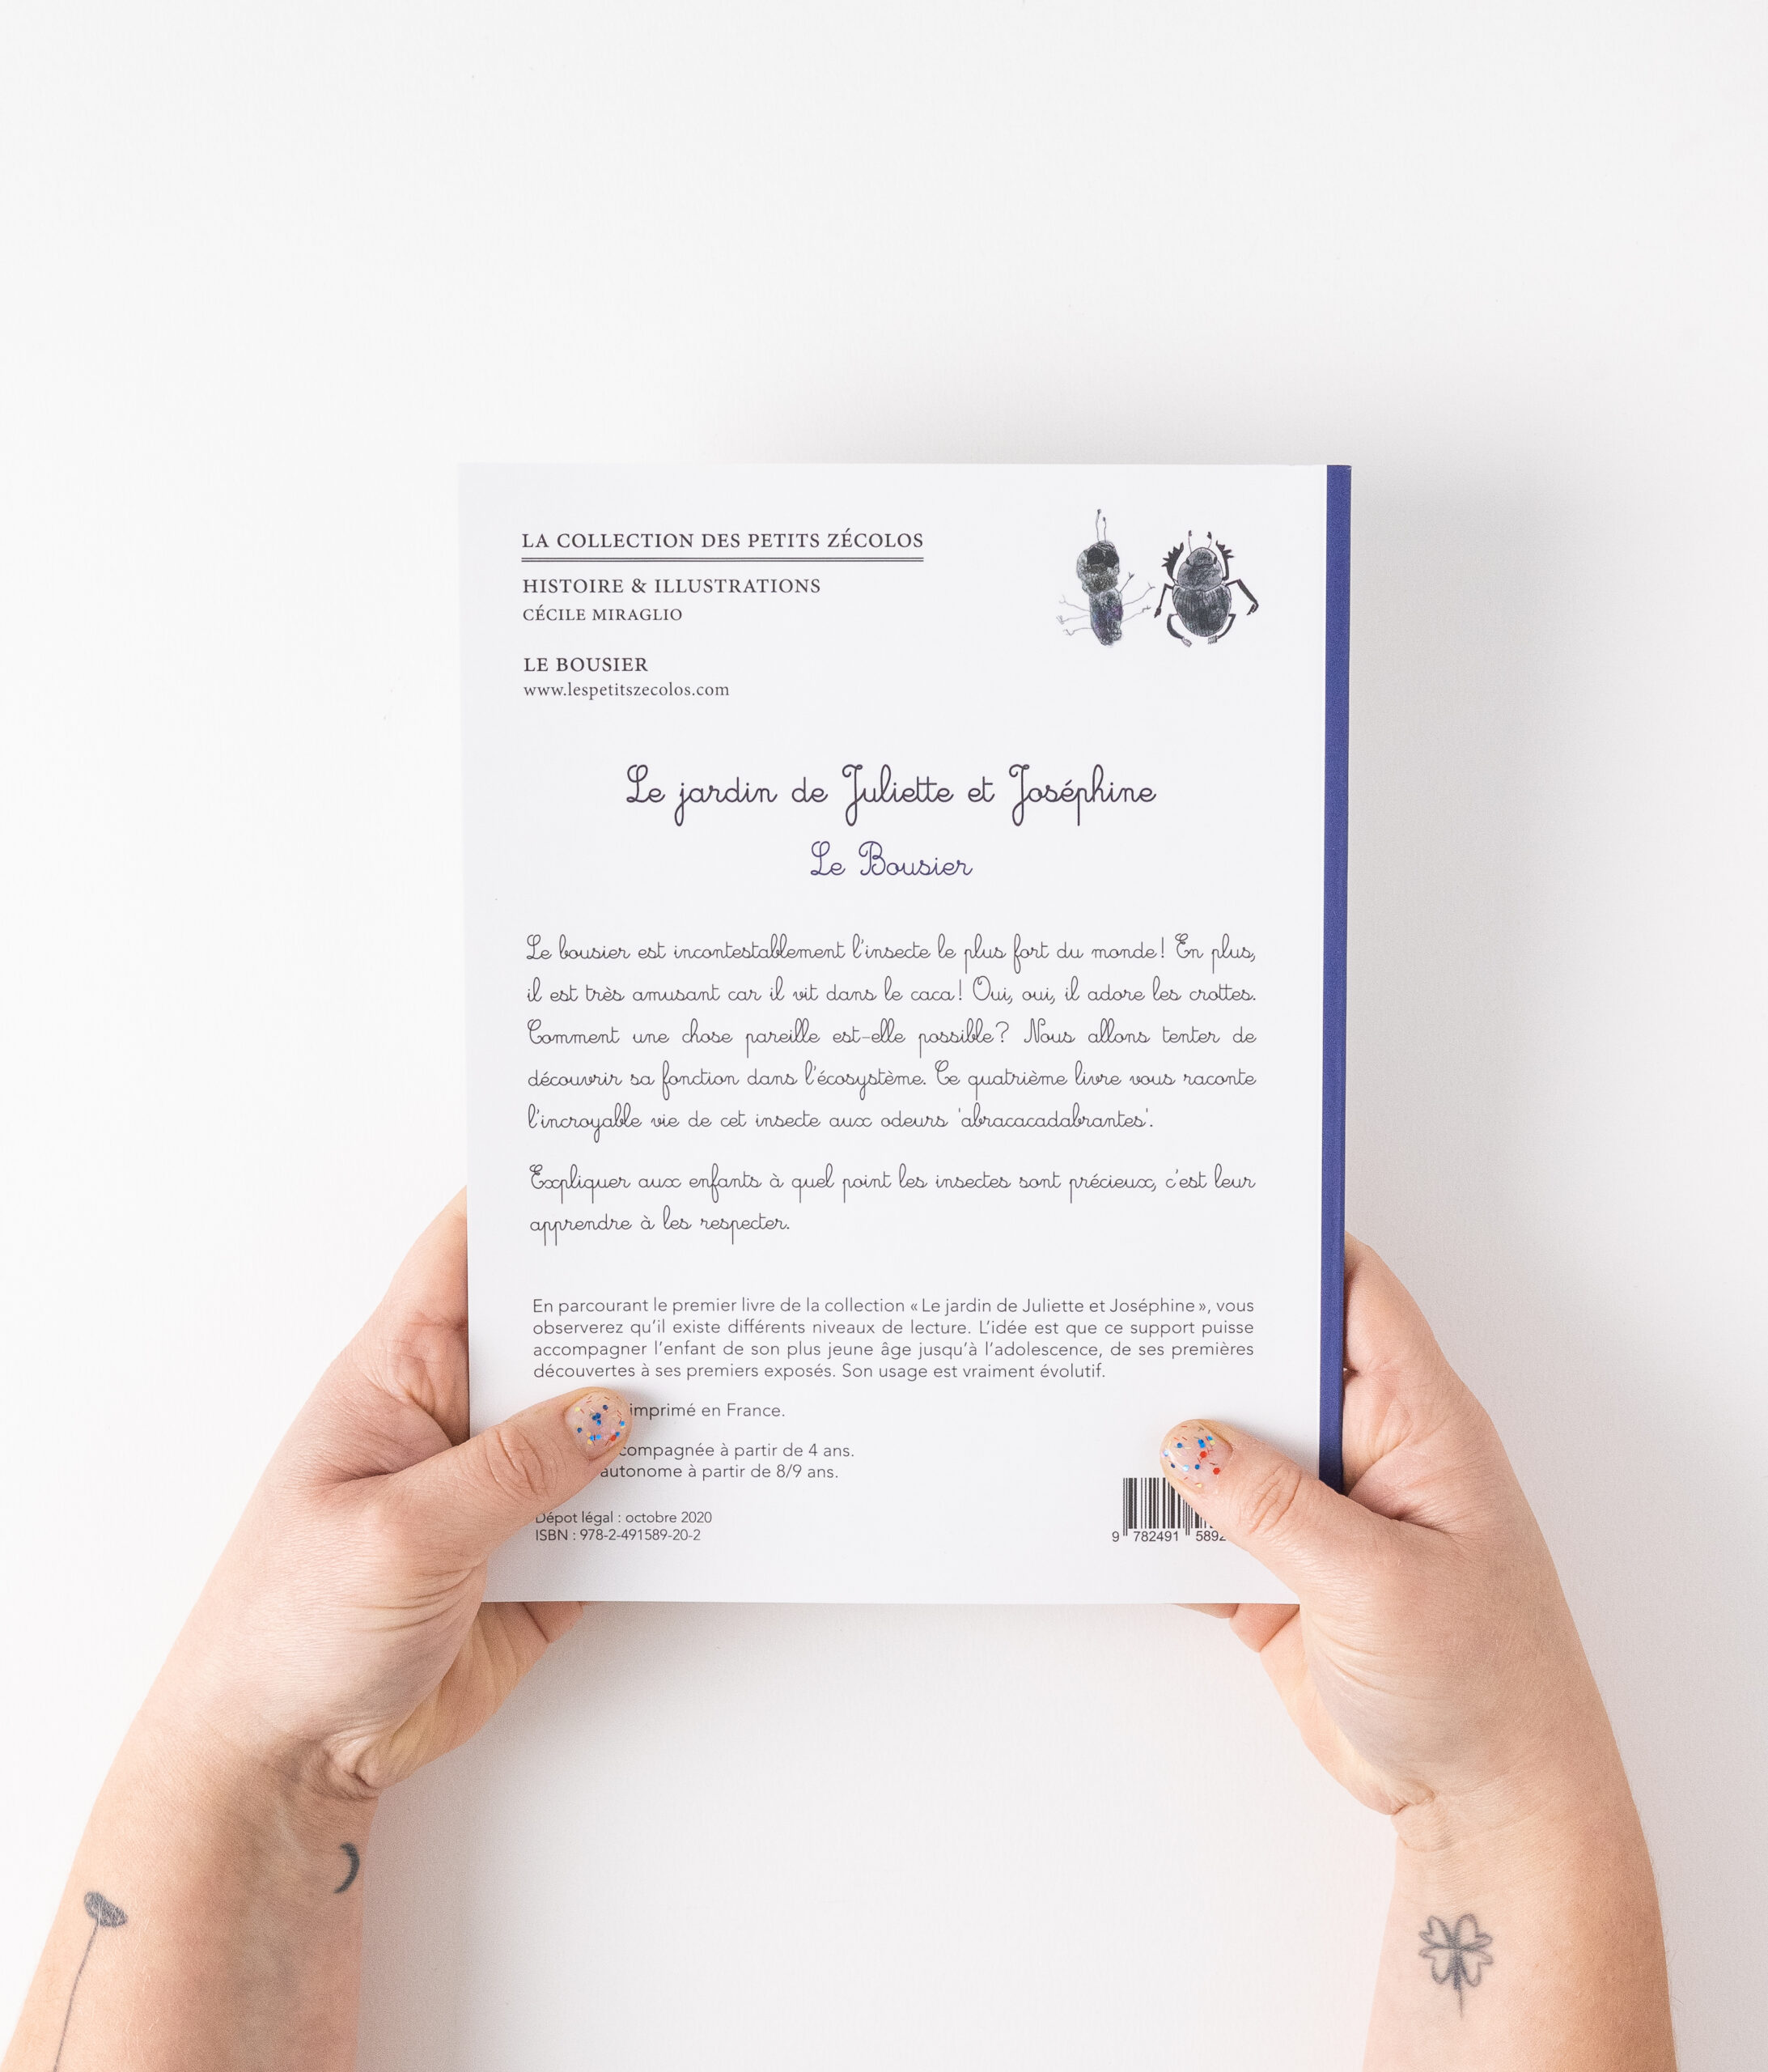 LA COLLECTION DES PETITS ZÉCOLOS
HISTOIRE & ILLUSTRATIONS
CÉCILE MIRAGLIO
LE BOUSIER
www.lespetitszecolos.com
Le jardin de Juliette et Joséphine
Le Bousier
Le bousier est incontestablement l'insecte le plus fort du monde! En plus,
il est très amusant car il vit dans le caca! Oui, oui, il adore les crottes.
Comment une chose pareille est-elle possible? Nous allons tenter de
découvrir sa fonction dans l'écosystème. Ce quatrième livre vous raconte
l'incroyable vie de cet insecte aux odeurs 'abracacadabrantes'.
Expliquer aux enfants à quel point les insectes sont précieux, c'est leur
apprendre à les respecter.
En parcourant le premier livre de la collection « Le jardin de Juliette et Joséphine », vous
observerez qu'il existe différents niveaux de lecture. L'idée est que ce support puisse
accompagner l'enfant de son plus jeune âge jusqu'à l'adolescence, de ses premières
découvertes à ses premiers exposés. Son usage est vraiment évolutif.
imprimé en France.
compagnée à partir de 4 ans.
autonome à partir de 8/9 ans.
Dépot légal : octobre 2020
ISBN : 978-2-491589-20-2
9 782491 5892